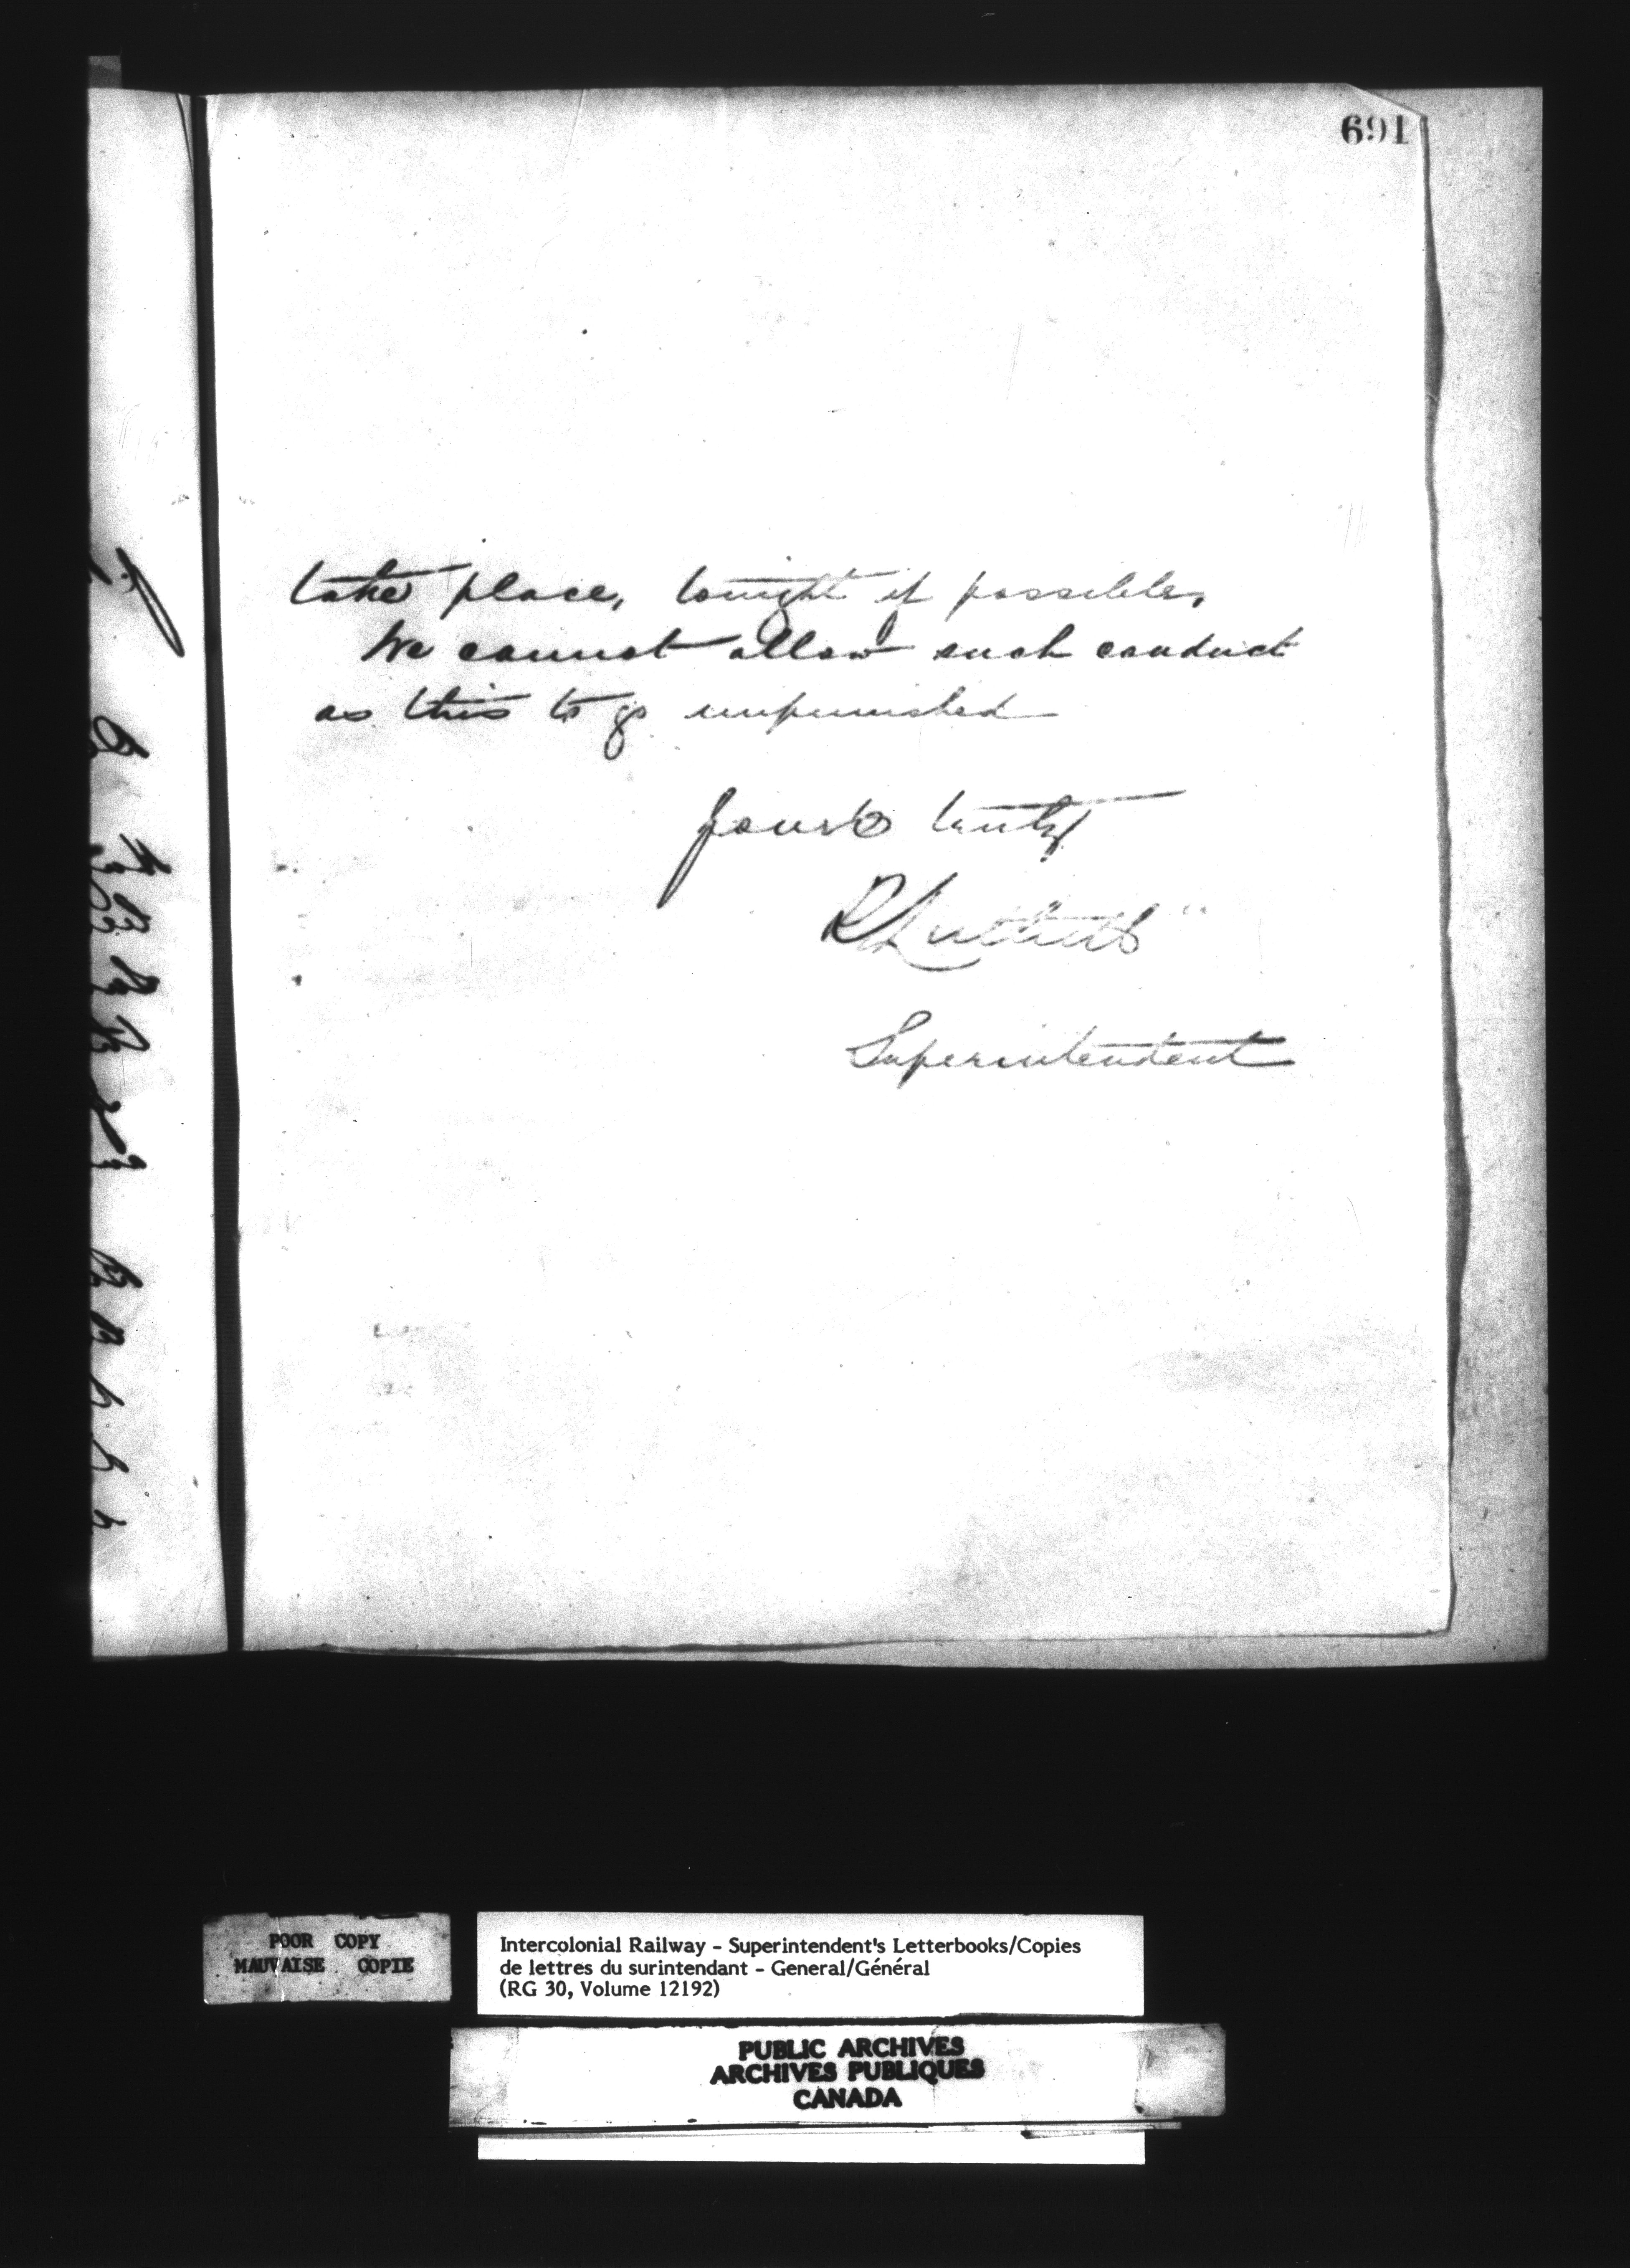 691
take place, tonight if possible,
We cannot allow such conduct
as this to go unpunished
Yours truly
Superintendent
POOR COPY
MAUVAISE COPIE
Intercolonial Railway - Superintendent's Letterbooks/Copies
de lettres du surintendant - General/Général
(RG 30, Volume 12192)
PUBLIC ARCHIVES
ARCHIVES PUBLIQUES
CANADA